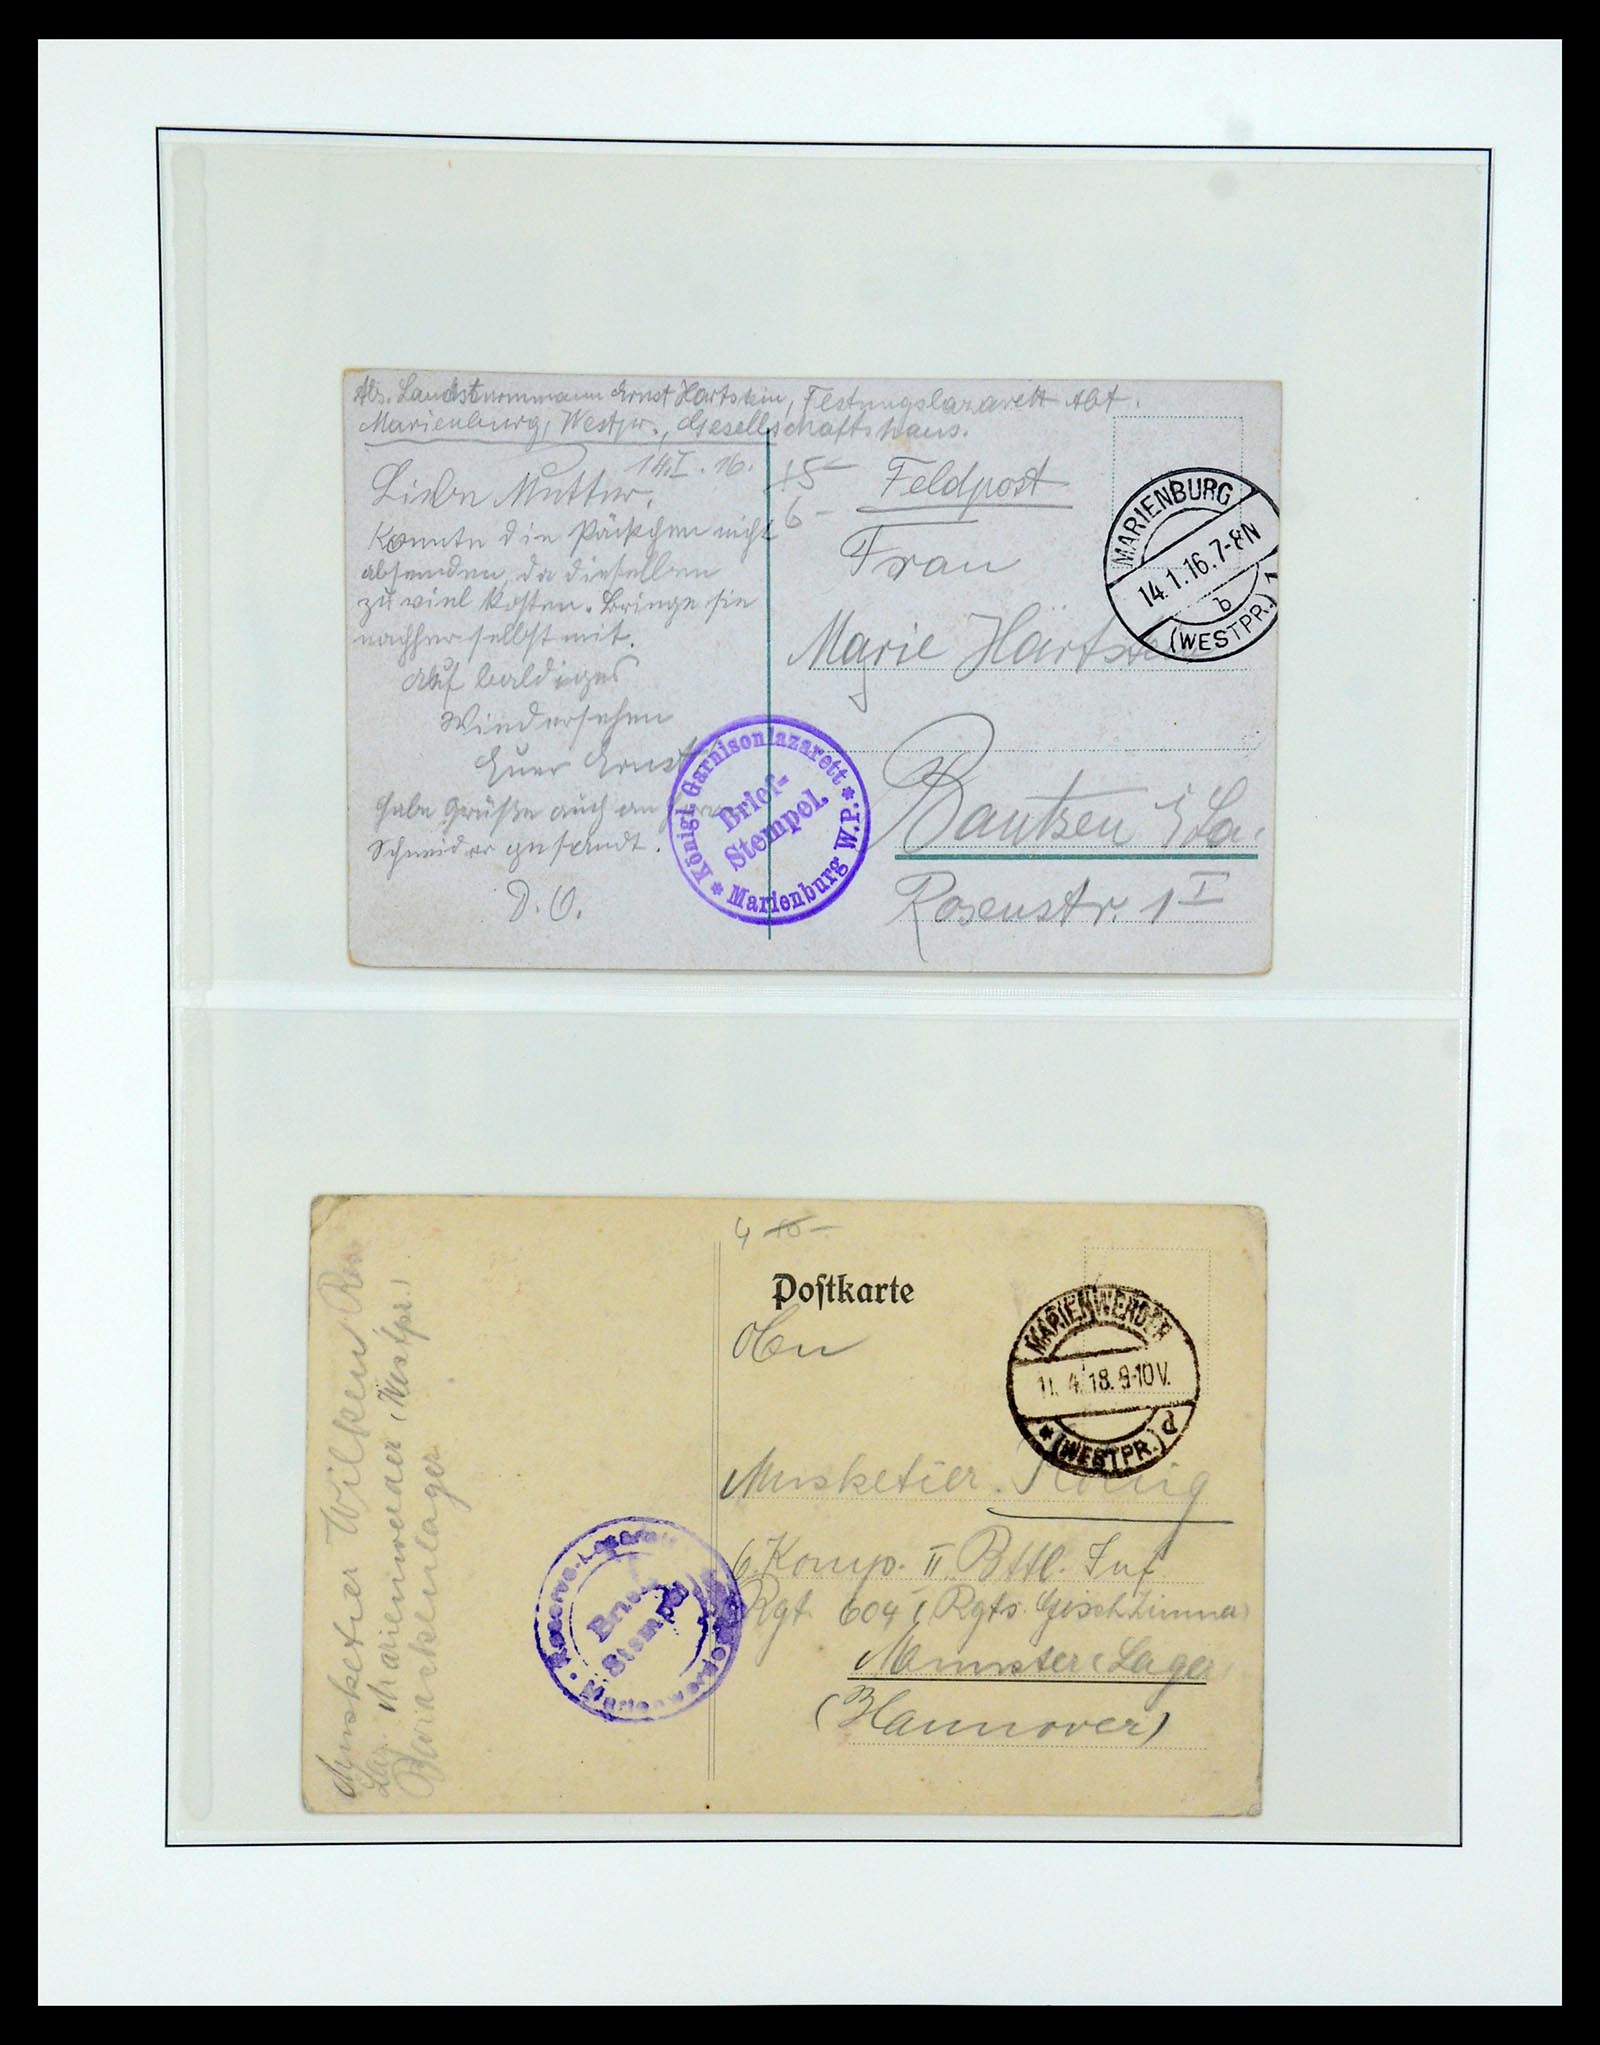 Abs. Landsturmmann Ernst Hartstein, Festungslazarett Abt.
Marienburg, Westpr., Gesellschaftshaus.
14.I.16.
Liebe Mutter.
Konnte die Päckchen nicht
absenden, da dieselben
zu viel kosten. Bringe sie
nachher selbst mit.
Auf baldiges
Wiedersehen
Euer Ernst
Habe Grüße auch an
Schneider gesandt.
D. O.
15-
6-
Feldpost
Frau
Marie Härtstein
Bautzen i/Sa.
Rosenstr. 1 I
MARIENBURG
14.1.16.7-8N
b
(WESTPR.)
Königl. Garnisonlazarett
Brief-
Stempel.
Marienburg W.P.
4 10-
Postkarte
MARIENWERDER
11.4.18.9-10V.
(WESTPR.) d
Musketier
6. Komp. II. Bttl. Inf
Rgt. 604 (Rgts.
Munster Lager
(Hannover)
Reserve-Lazarett
Brief
Stempel
Marienwerder
Musketier Wilken Res
Laz. Marienwerder (Westpr.)
Barackenlager